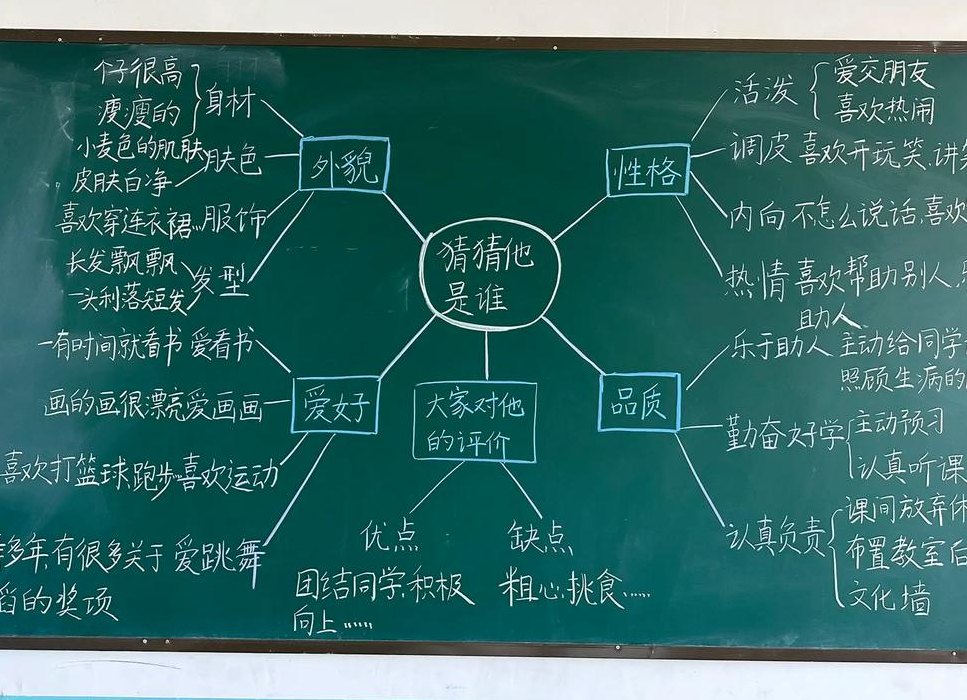 猜猜他
是谁
外貌
个子很高
瘦瘦的
身材
小麦色的肌肤
皮肤白净
肤色
喜欢穿连衣裙..服饰
长发飘飘
一头利落短发
发型
爱好
一有时间就看书 爱看书
画的画很漂亮 爱画画
喜欢打篮球.跑步 喜欢运动
多年,有很多关于 爱跳舞
蹈的奖项
大家对他
的评价
优点
团结同学.积极
向上......
缺点
粗心.挑食......
性格
活泼
爱交朋友
喜欢热闹
调皮 喜欢开玩笑.讲
内向 不怎么说话,喜欢
热情 喜欢帮助别人.
助人
品质
乐于助人 主动给同学
照顾生病的
勤奋好学
主动预习
认真听课
认真负责
课间放弃休
布置教室后
文化墙